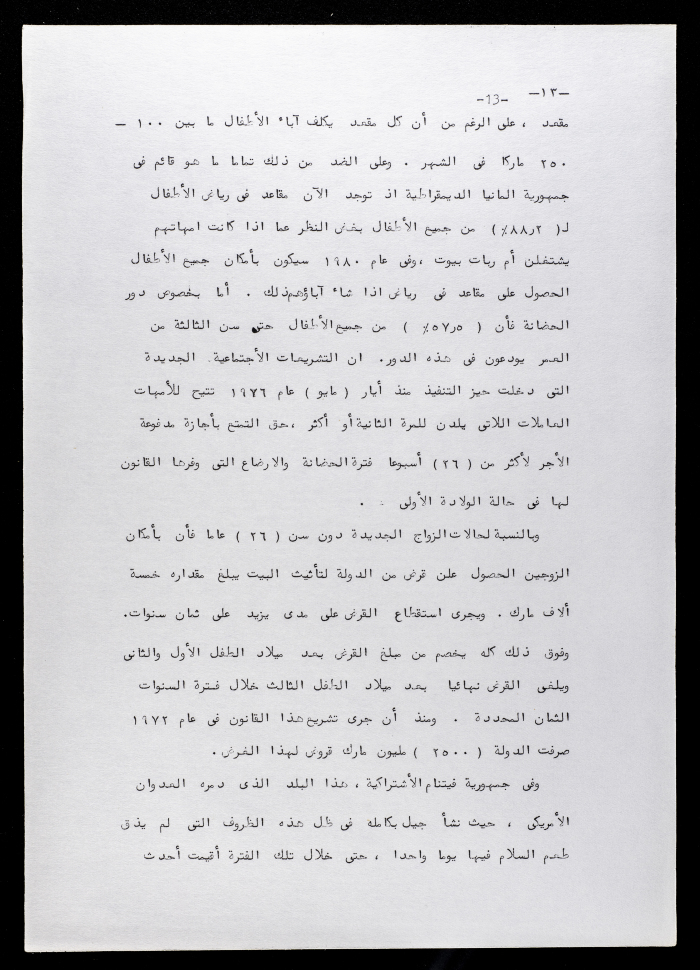 -١٣-
-13-
مقعد ، على الرغم من أن كل مقعد يكلف آباء الأطفال ما بين ١٠٠ -
٢٥٠ ماركا فى الشهر . وعلى الضد من ذلك تماما ما هو قائم فى
جمهورية المانيا الديمقراطية اذ توجد الآن مقاعد فى رياض الأطفال
لـ( ٨٨٫٢٪) من جميع الأطفال بغض النظر عما اذا كانت امهاتهم
يشتغلن أم ربات بيوت ،وفى عام ١٩٨٠ سيكون بأمكان جميع الأطفال
الحصول على مقاعد فى رياض اذا شاء آباؤهم ذلك . أما بخصوص دور
الحضانة فأن ( ٥٧٫٥٪ ) من جميع الأطفال حتى سن الثالثة من
العمر يودعون فى هذه الدور. ان التشريعات الأجتماعية الجديدة
التى دخلت حيز التنفيذ منذ أيار ( مايو ) عام ١٩٧٦ تتيح للأمهات
العاملات اللاتى يلدن للمرة الثانية أو أكثر ،حق التمتع بأجازة مدفوعة
الأجر لأكثر من ( ٢٦ ) أسبوعا فترة الحضانة والارضاع التى وفرها القانون
لها فى حالة الولادة الأولى .
وبالنسبة لحالات الزواج الجديدة دون سن ( ٢٦ ) عاما فأن بأمكان
الزوجين الحصول علن قرض من الدولة لتأثيث البيت يبلغ مقداره خمسة
ألاف مارك . ويجرى استقطاع القرض على مدى يزيد على ثمان سنوات.
وفوق ذلك كله يخصم من مبلغ القرض بعد ميلاد الطفل الأول والثانى
ويلغى القرض نهائيا بعد ميلاد الطفل الثالث خلال فترة السنوات
الثمان المحددة . ومنذ أن جرى تشريع هذا القانون فى عام ١٩٧٢
صرفت الدولة ( ٢٥٠٠ ) مليون مارك قروض لهذا الغرض.
وفى جمهورية فيتنام الأشتراكية ، هذا البلد الذى دمره العدوان
الأمريكى ، حيث نشأ جيل بكامله فى ظل هذه الظروف التى لم يذق
طعم السلام فيها يوما واحدا ، حتى خلال تلك الفترة أقيمت أحدث